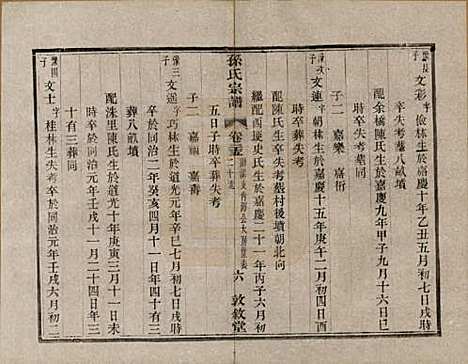 豫長
子 文彩 字儉林生於嘉慶十年乙丑五月初七日戌時
卒失考葬八畝墳
配余橋陳氏生於嘉慶九年甲子九月十六日巳
時卒葬失考墓同
子二 嘉樂 嘉衍
文連 字朝林生於嘉慶十五年庚午二月初四日戌時
卒失考葬村後墳朝北向
配陳氏生卒失考
繼配西埂史氏生於嘉慶二十一年丙子六月初
孫氏宗譜 卷五 二十 六 敦敘堂
五日子時卒葬失考
子二 嘉福 嘉壽
豫三
子 文遥 字巧林生於道光元年辛巳七月初七日戌時
卒於同治二年癸亥四月十一日年四十有三
葬八畝墳
配洙里陳氏生於道光十年庚寅三月十一日未
時卒於同治元年壬戌十一月二十日年三
十有三葬同
豫四
子 文士 字桂林生失考卒於同治元年壬戌六月初二